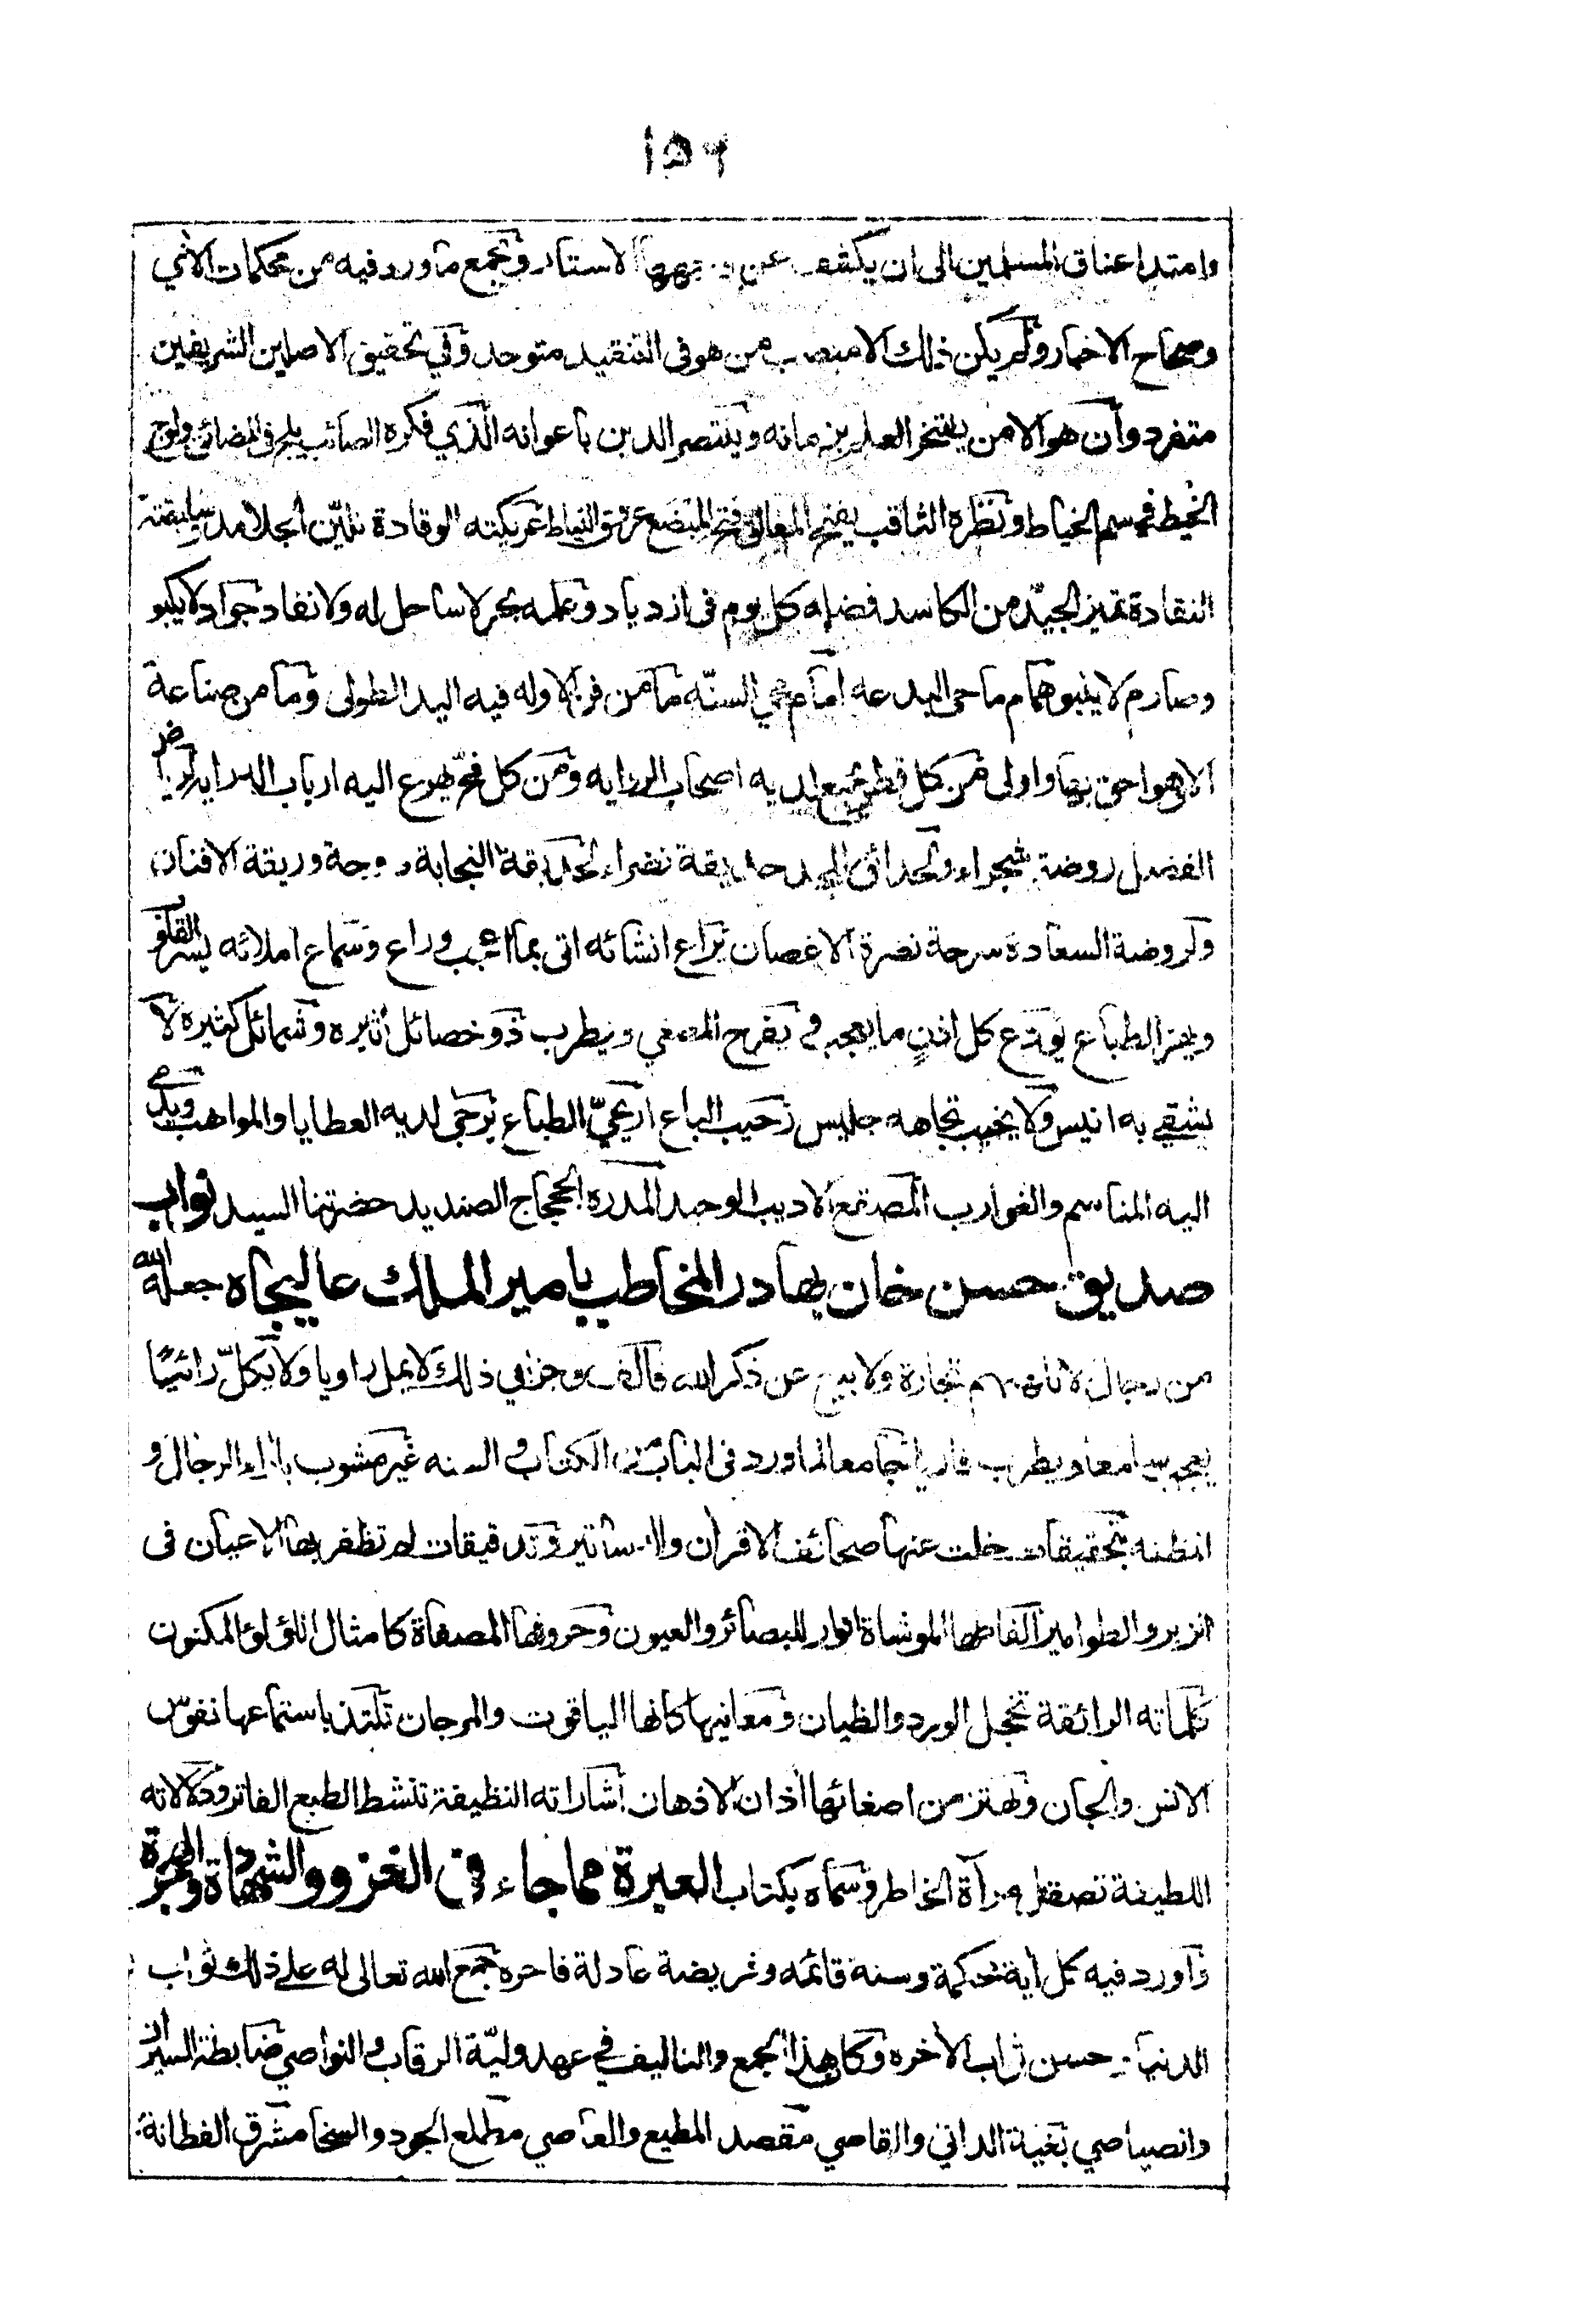 ١٥٦
وامتد اعناق المسلمين الى ان يكشف عن وجهها الاستار ويجمع ما ورد فيه من محكمات الآي
وصحاح الاخبار ولم يكن ذلك الا منصب من هو في التنقيد متوحد وفي تحقيق الاصلين الشريفين
متفرد وان هو الا من يفتخر العلم بزمانه وينتصر الدين باعوانه الذي فكره الصائب يلج في المضائق ولوج
الخيط في سم الخياط ونظره الثاقب يفتح المغالق فتح المبضع عرق النباط عريكته الوقادة تلين الجلامد وسليقته
النقادة تميز الجيد من الكاسد فضله كل يوم في ازدياد وعلمه بحر لا ساحل له ولا نفاد جواد لا يكبو
وصارم لا ينبو همام ماحي البدعه امام محي السنّه ما من فن الا وله فيه اليد الطولى وما من صناعة
الا هو احق بها واولى من كل قطر يجمع لديه اصحاب الروايه ومن كل فج يهرع اليه ارباب الدرايه لرياض
الفضل روضة شجراء ولحدائق المجد حديقة نضراء لحديقة النجابة دوحة وريقة الافنان
ولروضة السعادة سرحة نضرة الاغصان يراع انشائه اتى بما اعجب وراع وسماع املائه يسر القلوب
ويهز الطباع يودع كل اذن ما يعجبه فيفرح المصغي ويطرب ذو خصائل اثيره وشمائل كثيره لا
يشقى به انيس ولا يخيب تجاهه جليس رحيب الباع اريحيّ الطباع يرجى لديه العطايا والمواهب ويدمى
اليه المناسم والغوارب المصقع الاديب الوحيد المدره الحجاج الصنديد حضرتنا السيد نواب
صديق حسن خان بهادر المخاطب بامير الملك عاليجاه جعله الله
من رجال لا تلهيهم تجارة ولا بيع عن ذكر الله فالف وجزا في ذلك لا يمل راويا ولا يكلّ رائيا
يعجب سامعا ويطرب قاريا جامعا لما ورد في الباب من الكتاب والسنه غير مشوب باراء الرجال و
المظنه بتحقيقات خلت عنها صحائف الاقران والدساتير وتدقيقات لم تظفر بها الاعيان في
الزبر والطوامير الفاظها الموشاة انوار للبصائر والعيون وحروفها المصفاة كامثال اللؤلؤ المكنون
كلماته الرائقة تخجل الورد والظيان ومعانيها كانها الياقوت والمرجان تلتذ باستماعها نفوس
الانس والجان وتهتز من اصغائها اذان الاذهان اشاراته النظيفة تنشط الطبع الفاتر ودلالاته
اللطيفة تصقل مرآة الخاطر وسماه بكتاب العبرة مما جاء في الغزو والشهادة والهجرة
واورد فيه كل آية محكمة وسنة قائمه وفريضة عادلة فاخره جمع الله تعالى له على ذلك ثواب
الدنيا وحسن ثواب الاخره وكان هذا الجمع والتاليف في عهد وليّة الرقاب والنواصي ضابطة
والصياصي بغية الداني والقاصي مقصد المطيع والعاصي مطلع الجود والسخا مشرق الفطانة